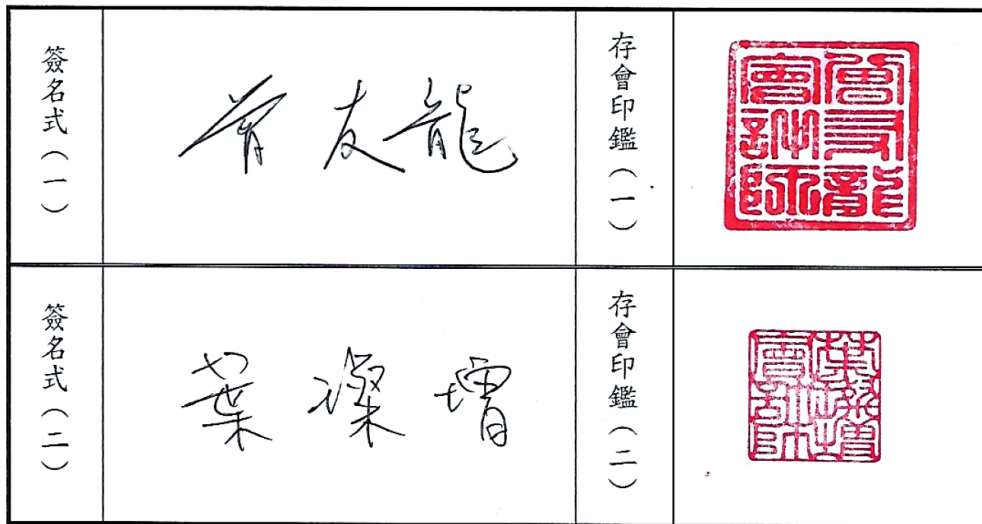 簽名式(一)
曾友龍
存會印鑑(一)
曾友龍
會計師
簽名式(二)
葉 增
存會印鑑(二)
葉 增
會計師